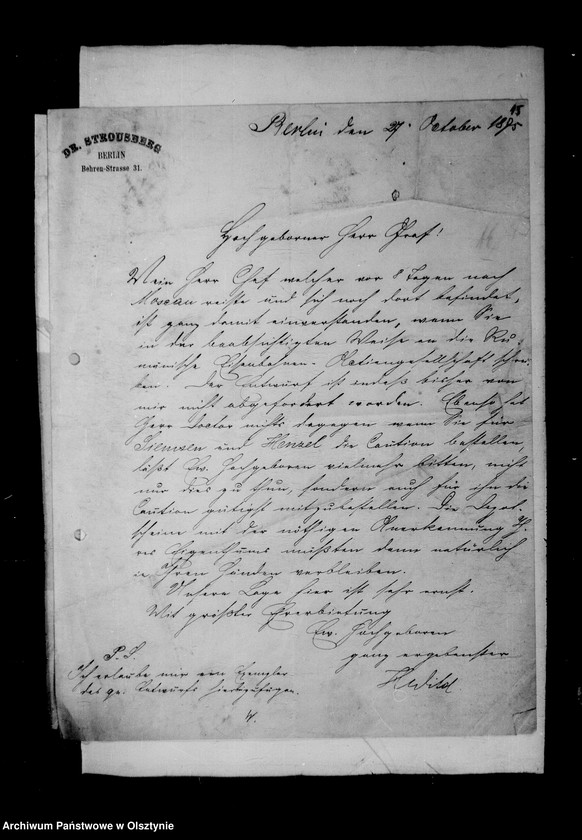 45
DR. STROUSBERG
BERLIN
Behren-Strasse 31.
Berlin den 27. October 1875
Hochgeborner Herr Graf!
Mein Herr Chef welcher vor 8 Tagen nach
Moscau reiste und sich noch dort befindet,
ist ganz damit einverstanden, wenn Sie
in der beabsichtigten Weise an die Ru-
mänische Eisenbahnen-Actiengesellschaft schrei-
ben. Der Entwurf ist indeß bisher von
mir nicht abgefordert worden. Ebenso hat
Herr Doctor nichts dagegen wenn Sie für
Siemsen und Henzel die Caution bestellen,
läßt Ew. Hochgeboren vielmehr bitten, nicht
nur dies zu thun, sondern auch für ihn die
Caution gütigst mitzubestellen. Die Depot-
scheine mit der nöthigen Anerkennung Ih-
res Eigenthums müßten dann natürlich
in Ihren Händen verbleiben.
Unsere Lage hier ist sehr ernst.
Mit größter Ehrerbietung
Ew. Hochgeboren
ganz ergebenster
P.S.
Ich erlaube mir ein Exemplar
des qu. Entwurfs hierbeizufügen.
Archiwum Państwowe w Olsztynie